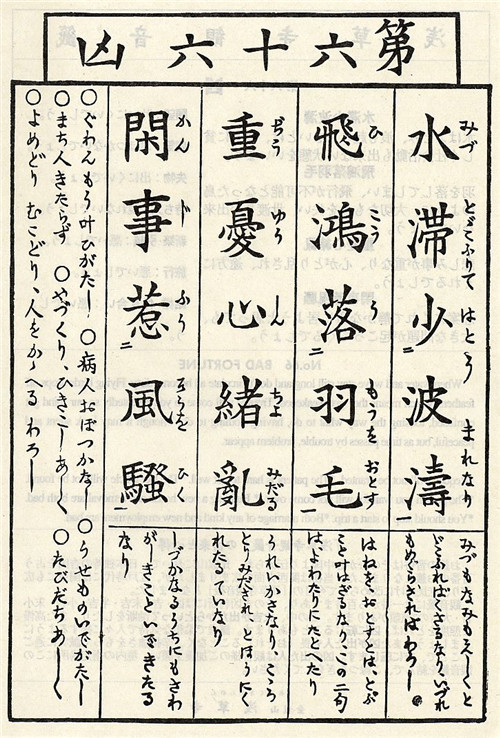 第六十六凶
水滞少波濤
みづ とゞこふりて はとう まれなり
みづもなみも
どこふればくさるなり、いづれ
もめぐらさればわろし
飛鴻落羽毛
ひ こう う もうを おとす
はねをおとすとは、とぶ
こと叶はざるなり、この二句
はよわたりにたとへたり
重憂心緒亂
ぢう ゆう しん ちよ みだる
うれいかさなり、こゝろ
とりみだされ、とほうにく
れたるていなり
閑事惹風騒
かん じ ふう そうを ひく
しづかなるうちにもさわ
がしきこといできたる
なり
○ぐわんもう叶ひがたし ○病人おぼつかなし ○うせものいでがたし
○まち人きたらず ○やづくり、ひきこしあしく ○たびだちあしく
○よめどり むこどり、人をかゝへるわろし